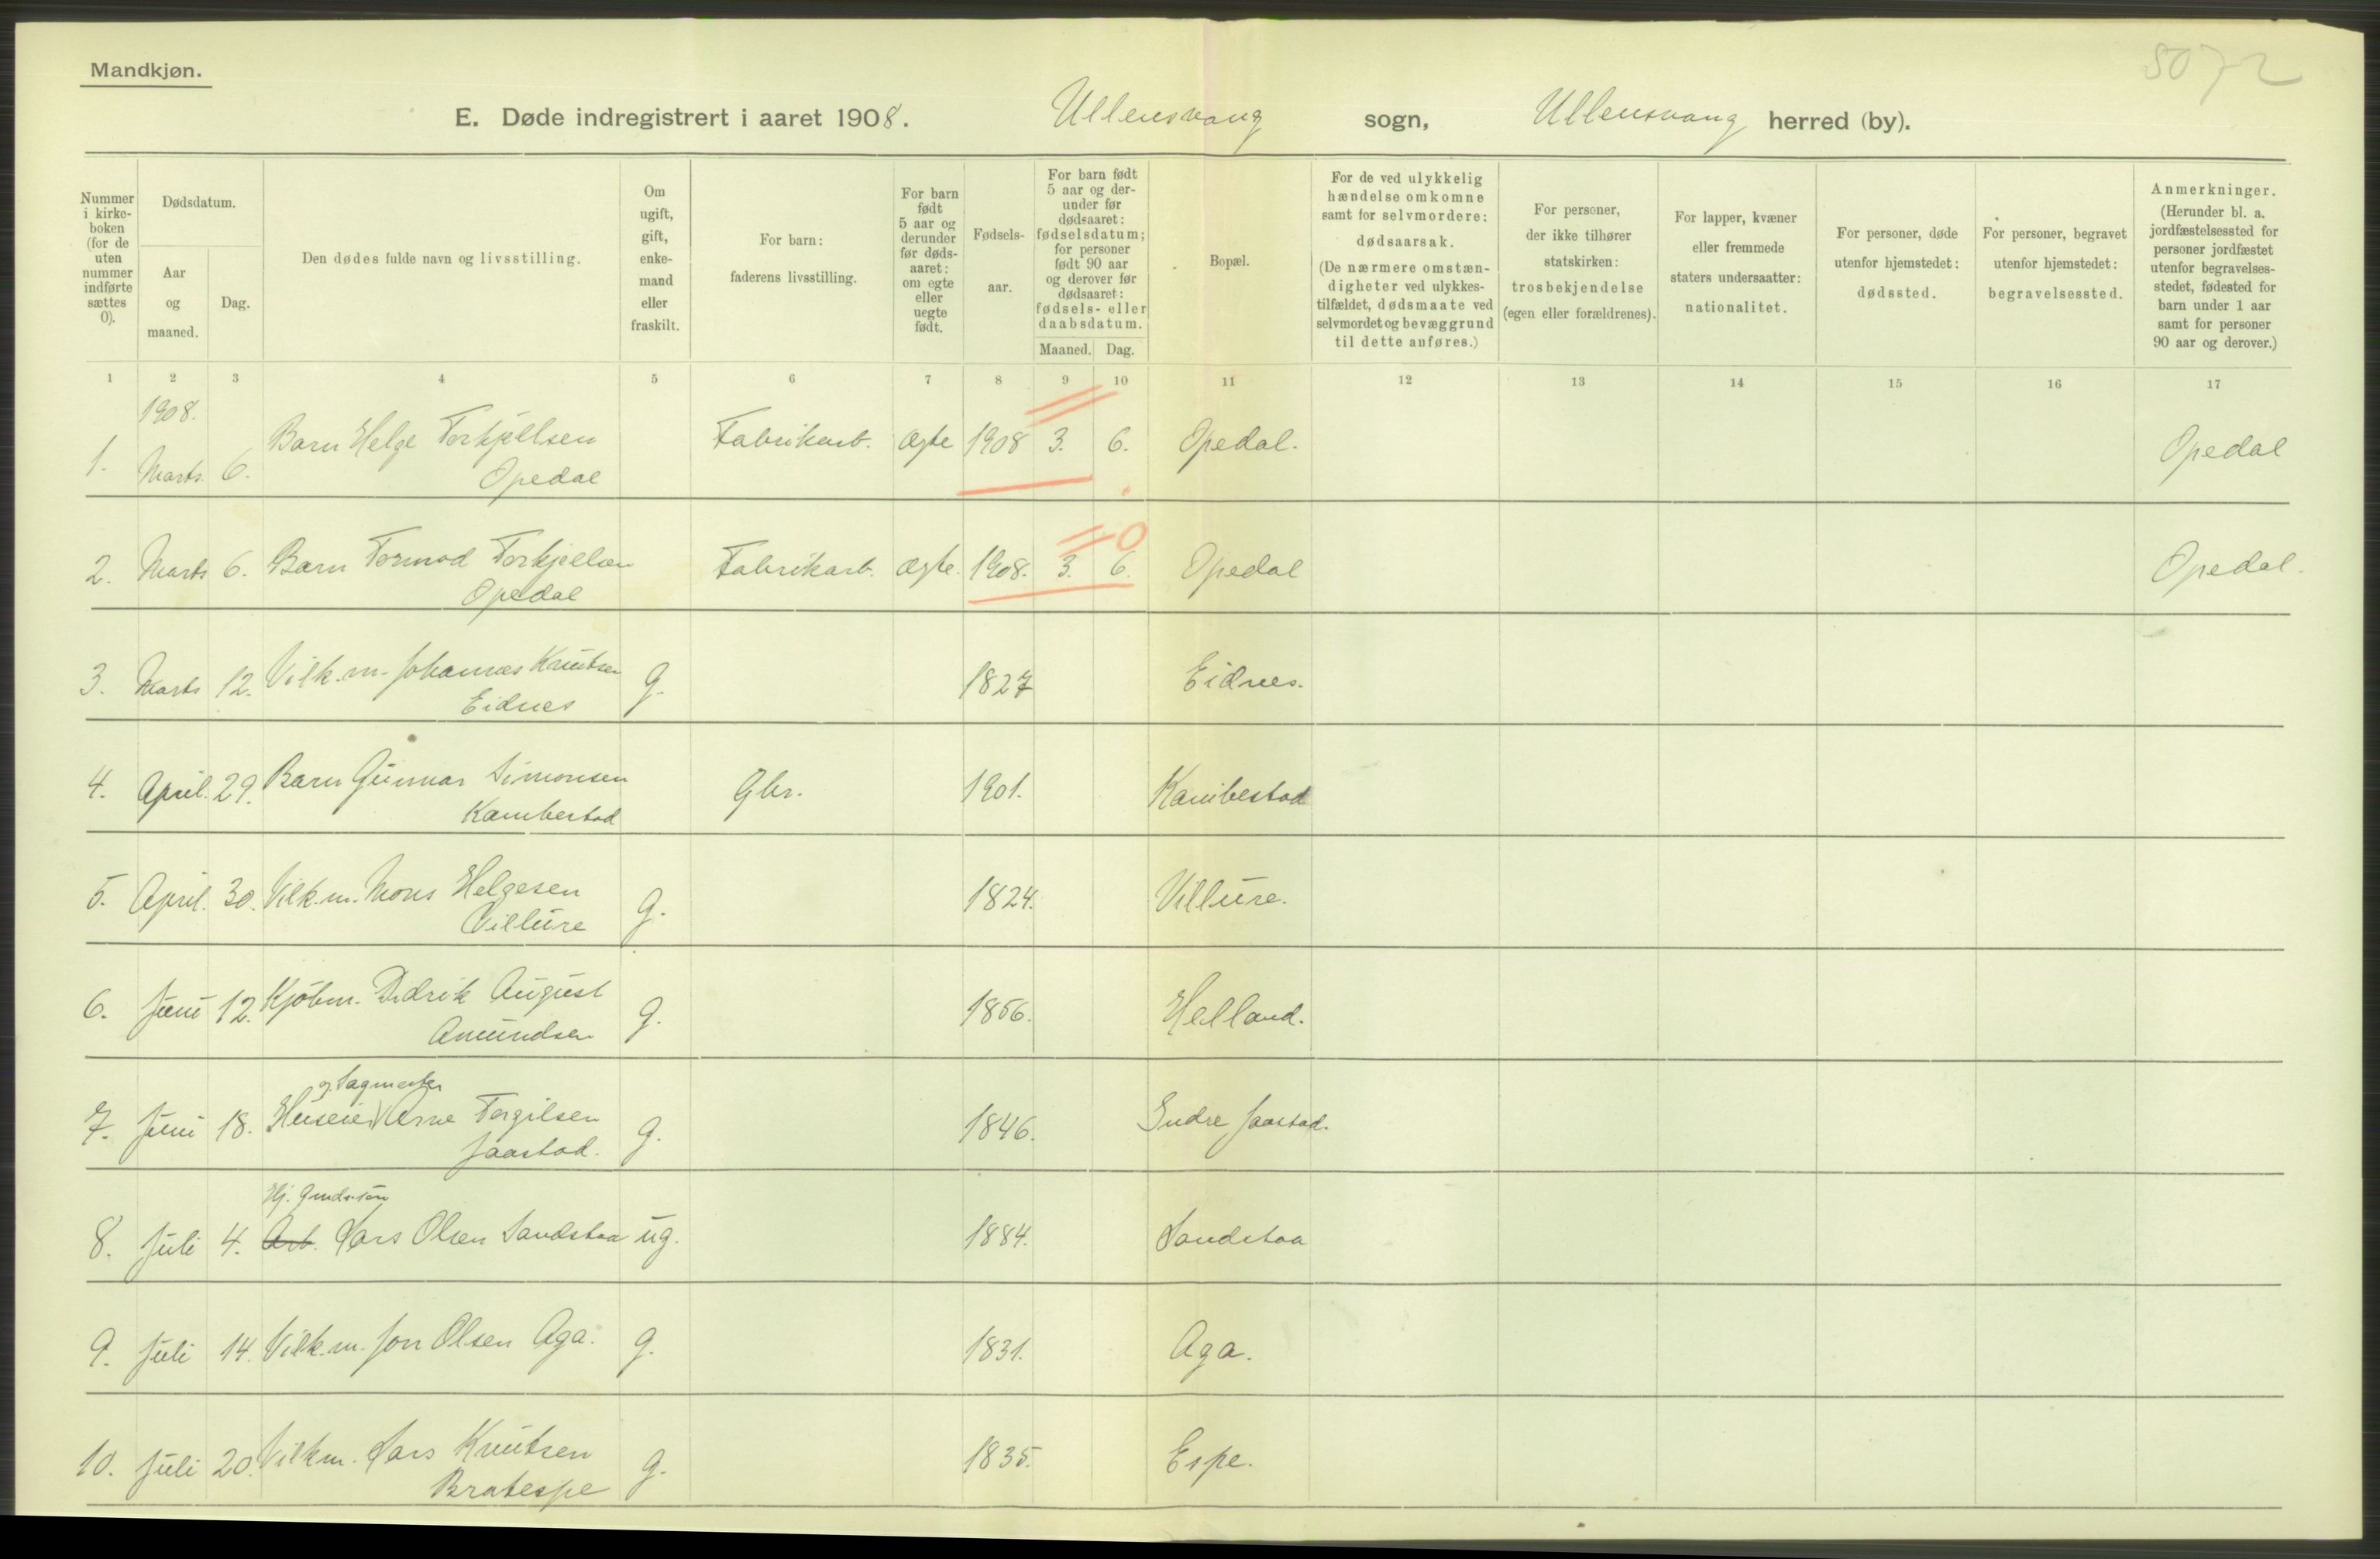 5072
Mandkjøn.
E. Døde indregistrert i aaret 1908. Ullensvang sogn, Ullensvang herred (by).
Nummer i kirke- boken (for de uten nummer indførte sættes 0).
Dødsdatum.
Aar og maaned.
Dag.
Den dødes fulde navn og livsstilling.
Om ugift, gift, enke- mand eller fraskilt.
For barn: faderens livsstilling.
For barn født 5 aar og derunder før døds- aaret: om egte eller uegte født.
Fødsels- aar.
For barn født 5 aar og der- under før dødsaaret: fødselsdatum; for personer født 90 aar og derover før dødsaaret: fødsels- eller daabsdatum.
Maaned. Dag.
Bopæl.
For de ved ulykkelig hændelse omkomne samt for selvmordere: dødsaarsak. (De nærmere omstæn- digheter ved ulykkes- tilfældet, dødsmaate ved selvmordet og bevæggrund til dette anføres.)
For personer, der ikke tilhører statskirken: trosbekjendelse (egen eller forældrenes).
For lapper, kvæner eller fremmede staters undersaatter: nationalitet.
For personer, døde utenfor hjemstedet: dødssted.
For personer, begravet utenfor hjemstedet: begravelsessted.
Anmerkninger. (Herunder bl. a. jordfæstelsessted for personer jordfæstet utenfor begravelses- stedet, fødested for barn under 1 aar samt for personer 90 aar og derover.)
1 2 3 4 5 6 7 8 9 10 11 12 13 14 15 16 17
1908.
1. Marts. 6. Barn Helge Torkjellsen Fabrikarb. Ægte 1908 3. 6. Opedal. Opedal
Opedal
2. Marts 6. Barn Tormod Torkjelsen Fabrikarb. Ægte. 1908. 3. 6. Opedal Opedal.
Opedal
3. Marts 12. Vilk.m. Johannes Knutsen g. 1827 Eidnes.
Eidnes
4. April. 29. Barn Gunnar Simonsen Gbr. 1901. Kambestad
Kambestad
5. April. 30. Vilk.m. Mons Helgesen g. 1824. Villure.
Villure
6. Juni 12. Kjøbm. Didrik August g. 1856. Helland.
Amundsen
og Sagmester
7. Juni 18. Huseier Arne Torgilsen g. 1846. Indre Jaastad.
Jaastad.
Hj. Gmds.søn
8. Juli 4. Arb. Lars Olsen Sandstaa ug. 1884. Sandstaa
9. Juli 14. Vilk.m. Jon Olsen Aga. g. 1831. Aga.
10. Juli 20. Vilkm. Lars Knutsen g. 1835. Espe.
Bratespe